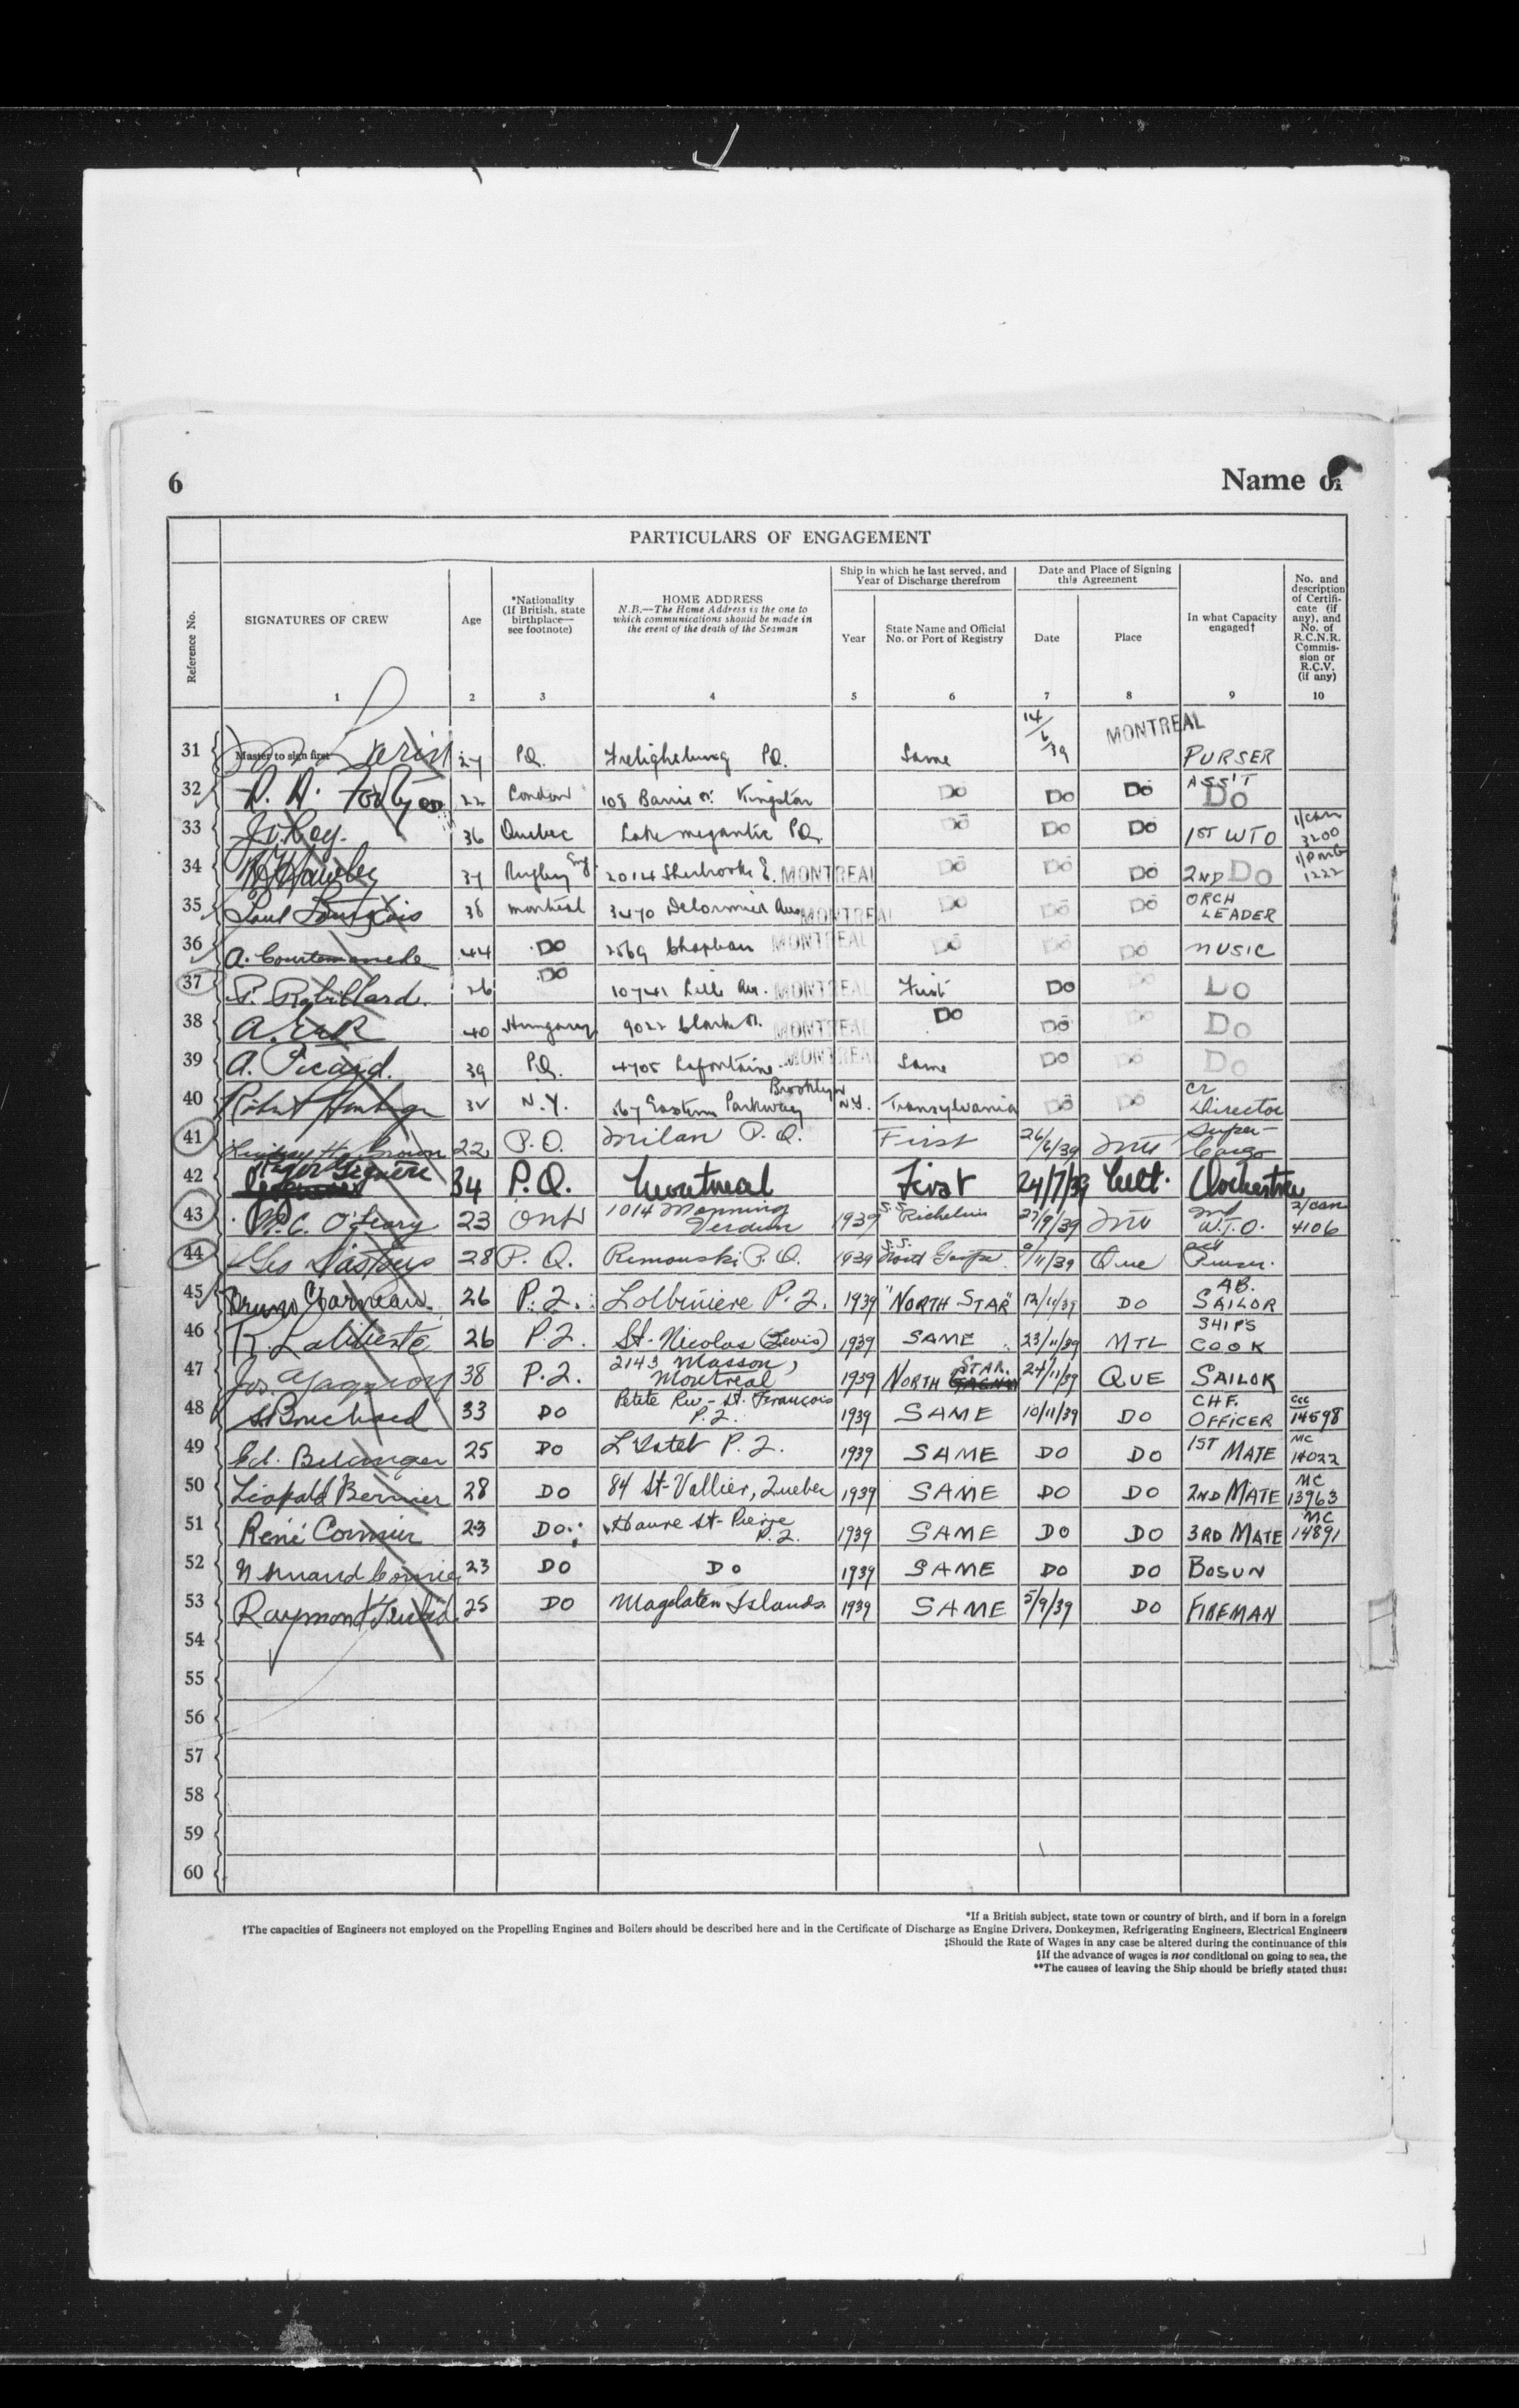 6
Name of
PARTICULARS OF ENGAGEMENT
Reference No.
SIGNATURES OF CREW
Age
*Nationality (If British, state birthplace— see footnote)
HOME ADDRESS
N.B.—The Home Address is the one to which communications should be made in the event of the death of the Seaman
Ship in which he last served, and Year of Discharge therefrom
Year
State Name and Official No. or Port of Registry
Date and Place of Signing this Agreement
Date
Place
In what Capacity engaged†
No. and description of Certificate (if any), and No. of R.C.N.R. Commission or R.C.V. (if any)
1 2 3 4 5 6 7 8 9 10
31 Master to sign first 27 P.Q. Frelighsburg P.Q. Same 14/6/39 MONTREAL PURSER
32 22 London 108 Barrie St. Kingston DO DO DO ASS'T DO
33 36 Quebec Lake Megantic P.Q. DO DO DO 1ST WTO 1/Can 3200
34 37 Rugby Eng. 2014 Sherbrooke E. MONTREAL DO DO DO 2ND DO 1222
35 Paul 38 Montreal 3470 Delormier Ave MONTREAL DO DO DO ORCH LEADER
36 A. Courtemanche 44 DO 2569 Chapleau MONTREAL DO DO DO MUSIC
37 P. Robillard. 26 DO 10741 Lille Av. MONTREAL First DO DO DO
38 40 Hungary 9022 Clark St. MONTREAL DO DO DO DO
39 A. Picard. 39 P.Q. 4705 Lafontaine MONTREAL Same DO DO DO
40 Robert 32 N.Y. 567 Eastern Parkway Brooklyn N.Y. Transylvania DO DO Cr Director
41 Lindsay H. Brown 22 P.Q. Milan P.Q. First 26/6/39 Mtl Super-Cargo
42 34 P.Q. Montreal First 24/7/39 Orchestra
43 M.C. O'Leary 23 Ont 1014 Manning Verdun 1939 S.S. Richelieu 27/9/39 Mtl 2nd W.T.O. 2/Can 4106
44 28 P.Q. Rimouski P.Q. 1939 S.S. North Gaspe 9/11/39 Que Purser.
45 Bruno Garneau 26 P.Q. Lotbiniere P.Q. 1939 "NORTH STAR" 12/11/39 DO AB. SAILOR
46 R. Laliberté 26 P.Q. St-Nicolas (Levis) 1939 SAME 23/11/39 MTL SHIPS COOK
47 Jos. Gagnon 38 P.Q. 2143 Masson, Montreal 1939 NORTH STAR. 24/11/39 QUE SAILOR
48 Bouchard 33 DO Petite Riv - St. François P.Q. 1939 SAME 10/11/39 DO CHF. OFFICER 14598
49 Ed. Belanger 25 DO L'Islet P.Q. 1939 SAME DO DO 1ST MATE MC 14022
50 Léopold Bernier 28 DO 84 St-Vallier, Quebec 1939 SAME DO DO 2ND MATE MC 13963
51 René Cormier 23 DO Havre St-Pierre P.Q. 1939 SAME DO DO 3RD MATE MC 14891
52 23 DO DO 1939 SAME DO DO BOSUN
53 Raymond 25 DO Magdalen Islands. 1939 SAME 5/9/39 DO FIREMAN
54
55
56
57
58
59
60
*If a British subject, state town or country of birth, and if born in a foreign
†The capacities of Engineers not employed on the Propelling Engines and Boilers should be described here and in the Certificate of Discharge as Engine Drivers, Donkeymen, Refrigerating Engineers, Electrical Engineers
‡Should the Rate of Wages in any case be altered during the continuance of this
§If the advance of wages is not conditional on going to sea, the
**The causes of leaving the Ship should be briefly stated thus: